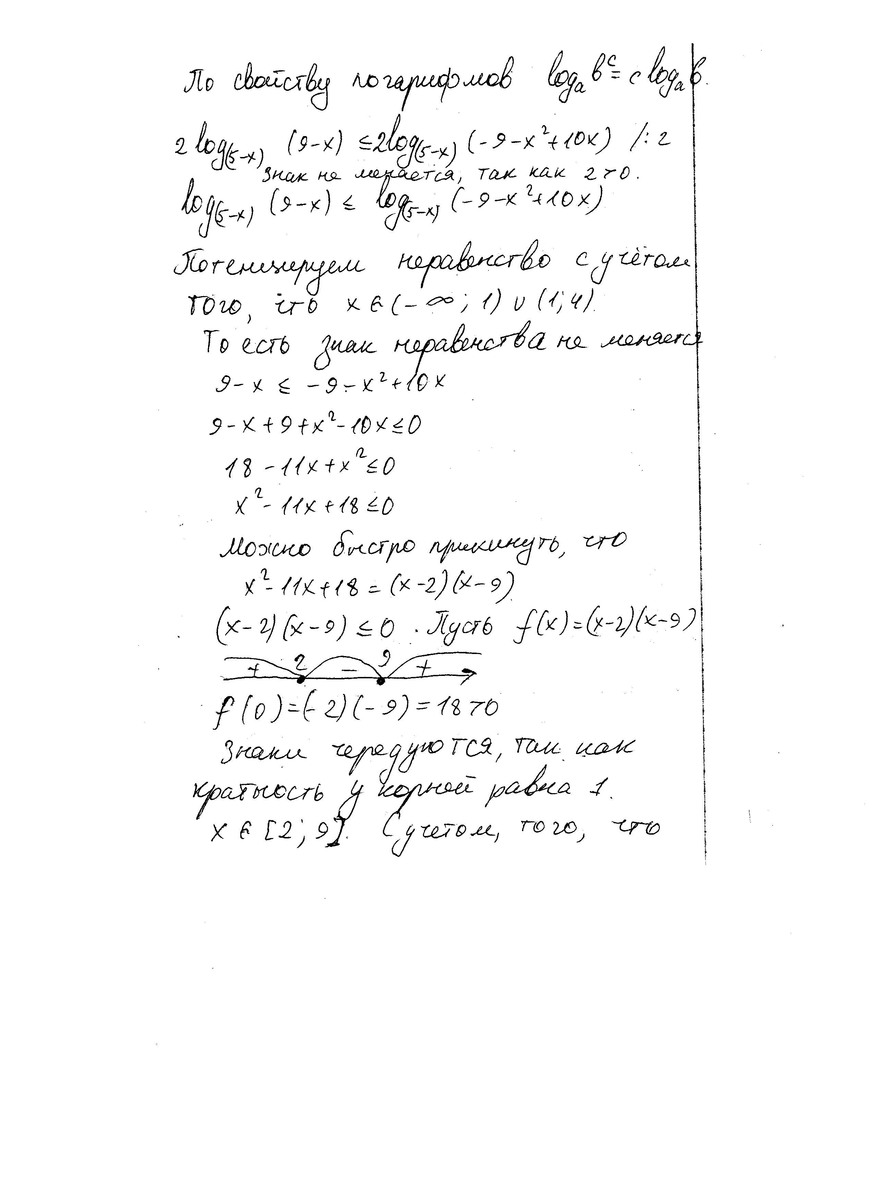 По свойству логарифмов logₐ bᶜ = c logₐ b.
2 log₍₅₋ₓ₎ (9-x) ≤ 2log₍₅₋ₓ₎ (-9-x²+10x) /:2
Знак не меняется, так как 2>0.
log₍₅₋ₓ₎ (9-x) ≤ log₍₅₋ₓ₎ (-9-x²+10x)
Потенцируем неравенство с учётом
того, что x ∈ (-∞; 1) ∪ (1; 4).
То есть знак неравенства не меняется
9-x ≤ -9-x²+10x
9-x+9+x²-10x≤0
18-11x+x²≤0
x²-11x+18≤0
Можно быстро прикинуть, что
x²-11x+18=(x-2)(x-9)
(x-2)(x-9)≤0. Пусть f(x)=(x-2)(x-9)
+ 2 - 9 +
f(0)=(-2)(-9)=18>0
Знаки чередуются, так как
кратность у корней равна 1.
x ∈ [2; 9]. С учетом, того, что